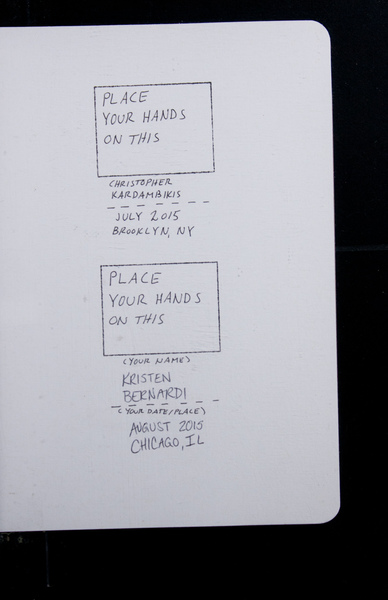 PLACE
YOUR HANDS
ON THIS
CHRISTOPHER
KARDAMBIKIS
JULY 2015
BROOKLYN, NY
PLACE
YOUR HANDS
ON THIS
(YOUR NAME)
KRISTEN
BERNARDI
(YOUR DATE/PLACE)
AUGUST 2015
CHICAGO, IL